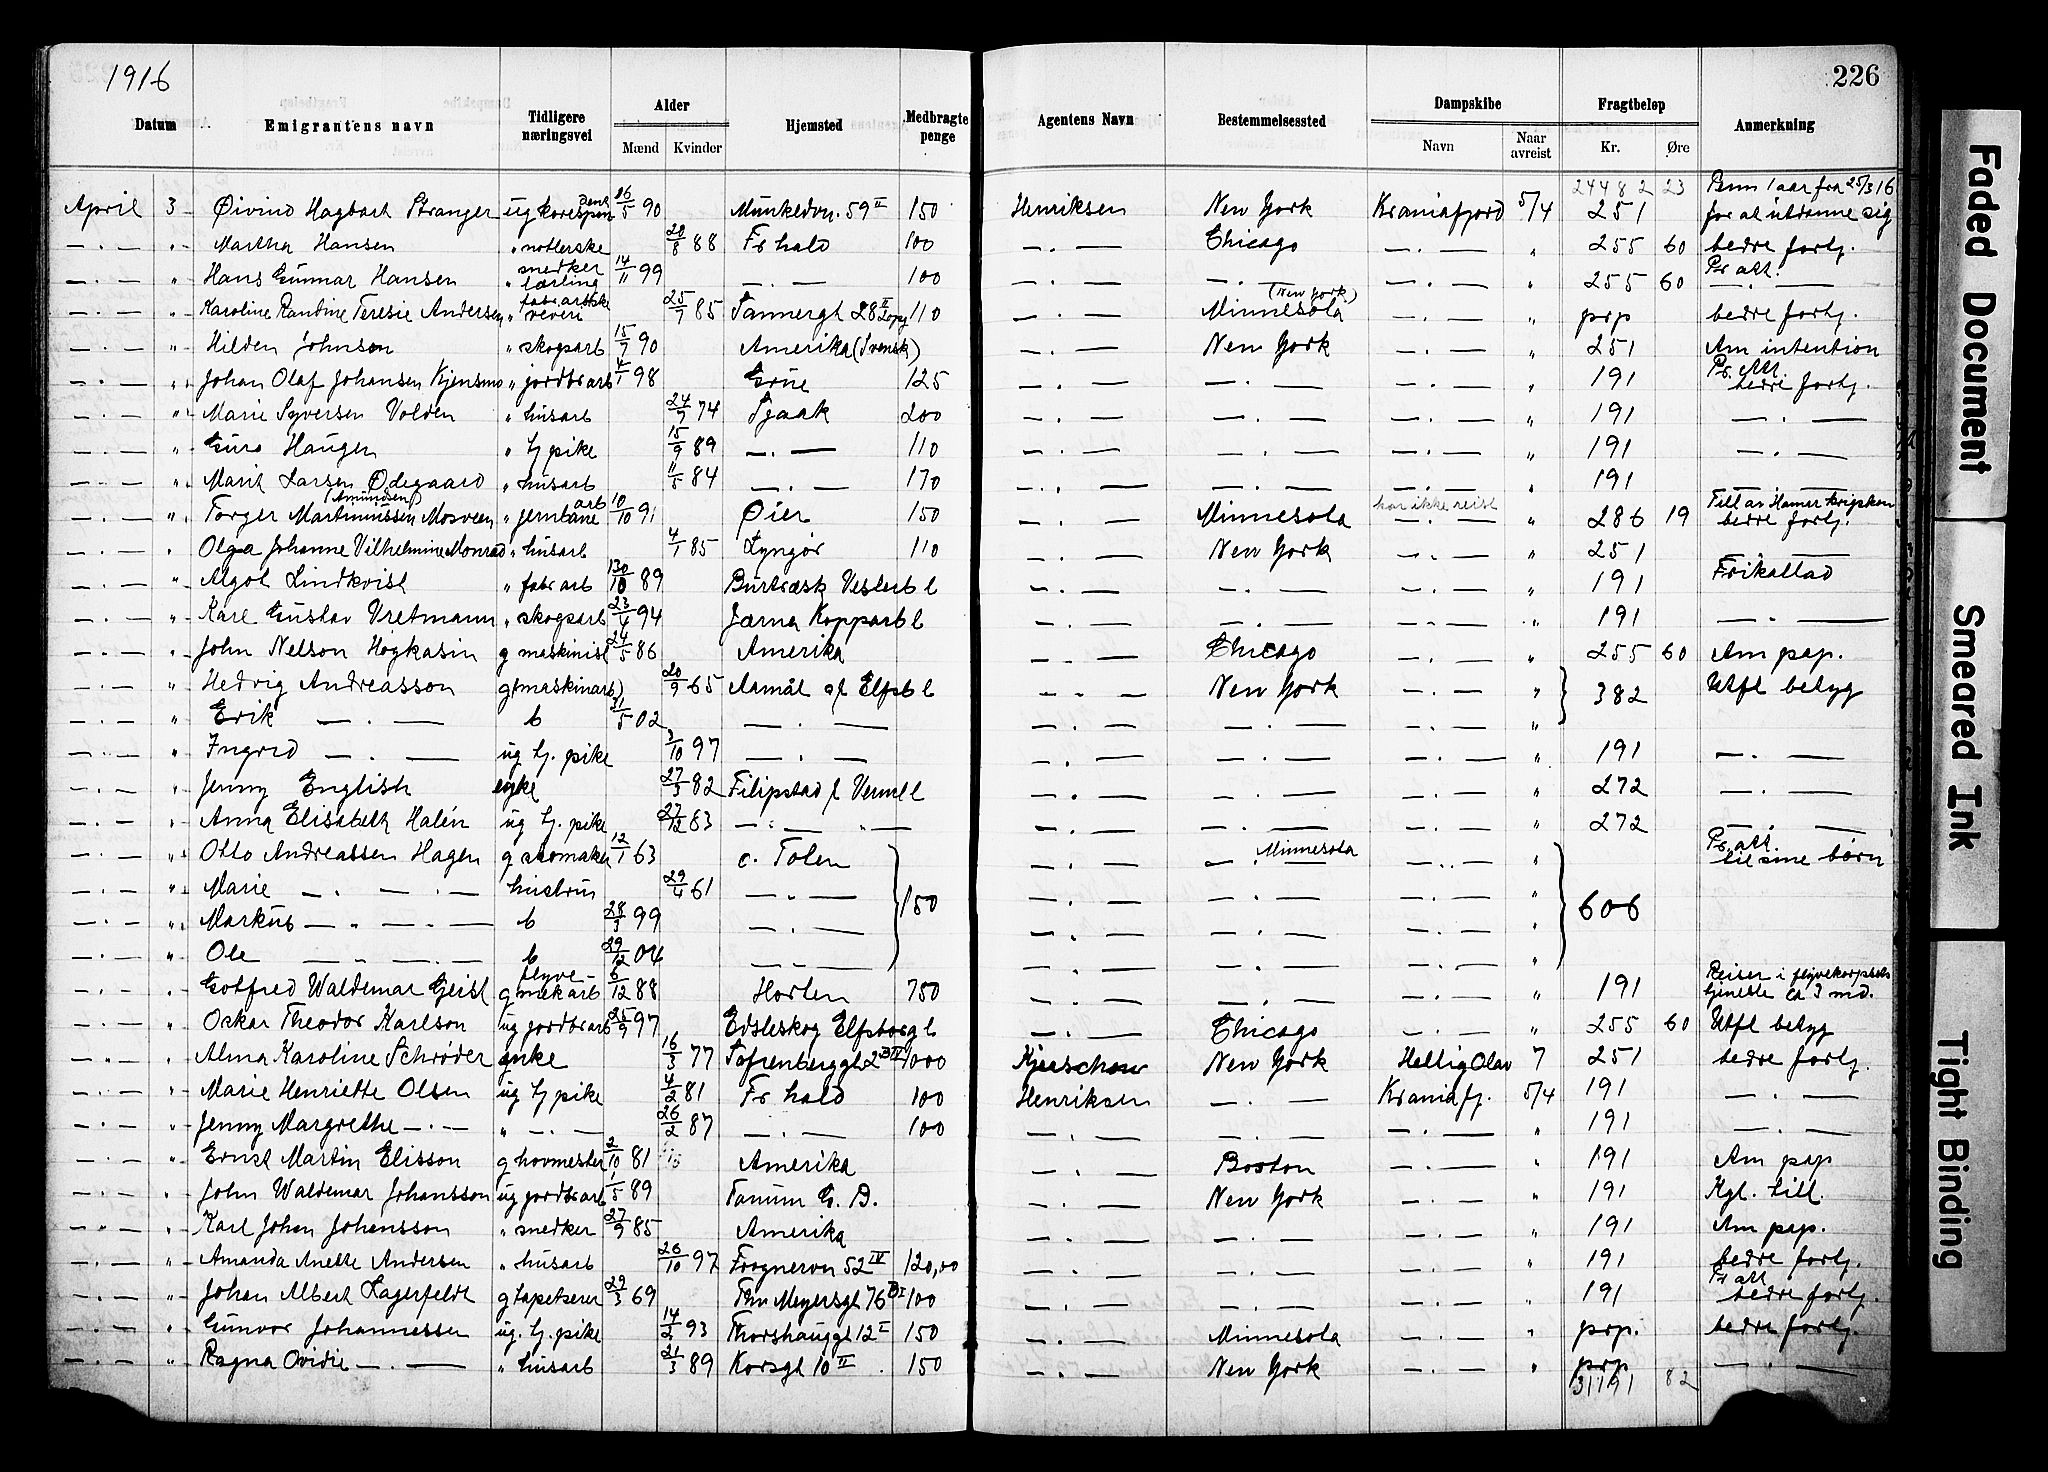 1916
226
Datum Emigrantens navn Tidligere næringsvei Alder Mænd Kvinder Hjemsted Medbragte penge Agentens Navn Bestemmelsessted Dampskibe Navn Naar avreist Fragtbeløp Kr. Øre Anmerkning
24482 23
April 3 Øivind Hagbart Stranger ug korespondent 26/5 90 Munkedvn. 59 II 150 Henriksen New York Kraniafjord 5/4 251 Perm 1 aar fra 25/3 16 for at utdanne sig
— . — " Martha Hansen " 20/8 88 Fr hald 100 — . — Chicago — . — " 255 60 bedre fortj.
— . — " Hans Gunnar Hansen " snedker lærling 14/11 99 — . — 100 — . — — . — — . — " 255 60 Pr att. — . —
— . — " Karoline Randine Teresie Andersen " fabr.arbske veveri 25/7 85 Tannergt 28 II 110 — . — (New York) Minnesota — . — " prp bedre fortj.
— . — " Hilden Johnson " skogsarb 15/7 90 Amerika (Svensk) — . — New York — . — " 251 Am intention
— . — " Johan Olaf Johansen Kjensmo " jordbrarb 4/1 98 Grue 125 — . — — . — — . — " 191 Pr. Att. bedre fortj.
— . — " Marie Syversen Volden " husarb 24/7 74 Skjaak 200 — . — — . — — . — " 191 — . —
— . — " Guro Haugen " tj pike 15/9 89 — . — 110 — . — — . — — . — " 191 — . —
— . — " Marit Larsen Ødegaard " husarb 11/5 84 — . — 170 — . — — . — — . — " 191 — . —
— . — " Torger Martinussen (Amundsen) Mosveen " jernbane arb 10/10 91 Øier 150 — . — Minnesota har ikke reist — . — " 286 19 Till av Hamer krigskom bedre fortj.
— . — " Olga Johanne Vilhelmine Monrad " husarb 4/1 85 Lyngør 110 — . — New York — . — " 251 — . —
— . — " Algot Lindkvist " fabr arb 10 89 Burtræsk Vesterb l — . — — . — — . — " 191 Frikallad
— . — " Karl Gustav Vretmann " skogsarb 23/4 94 Jærna Kopparb l — . — — . — — . — " 191 — . —
— . — " John Nelson Högkasin g maskinist 24/5 86 Amerika — . — Chicago — . — " 255 60 Am pap.
— . — " Hedvig Andreasson g (maskinarb) 20/9 65 Aamål af Elfsb l — . — New York — . — " 382 Utfl betyg
— . — " Erik — . — b 31/5 02 — . — — . — — . — — . — "
— . — " Ingrid — . — ug tj. pike 3/10 97 — . — — . — — . — — . — " 191 — . —
— . — " Jenny English enke 27/3 82 Filipstad f Verml l — . — — . — — . — " 272 — . —
— . — " Anna Elisabeth Halén ug tj. pike 27/12 83 — " — " — — . — — . — — . — " 272 — . —
— . — " Otto Andreassen Hagen g skomaker 12/1 63 Ø. Toten — . — Minnesota — . — " Pr. att. til sine børn
— . — " Marie — . — . — hustru 29/4 61 — . — 150 — . — — . — — . — " 606
— . — " Markus — " — . — b 28/3 99 — . — — . — — . — — . — "
— . — " Ole — . — . — b 29/12 04 — . — — . — — . — — . — "
— . — " Gotfred Waldemar Geist g flyve- mek arb 6/12 88 Horten 750 — . — — . — — . — " 191 Reiser i flyvekorpsets tjeneste ca 3 md.
— . — " Oskar Theodor Karlson ug jordbrarb 25/9 97 Edsleskog Elfsborg l — . — Chicago — . — " 255 60 Utfl betyg
— . — " Alma Karoline Schrøder enke 16/3 77 Sofienberggt 2 1000 Kjerschow New York Hellig Olav 7 251 bedre fortj.
— . — " Marie Henriette Olsen ug tj pike 4/2 81 Fr hald 100 Henriksen — . — Kraniafj. 5/4 191 — . —
— . — " Jenny Margrethe — . — " — . — 26/2 87 — . — 100 — . — — . — — . — " 191 — . —
— . — " Ernst Martin Elisson g hovmester 2/10 81 Amerika — . — Boston — . — " 191 Am pap
— . — " John Waldemar Johansson ug jordbrarb 1/5 89 Tanum G. B. — . — New York — . — " 191 Kgl. till.
— . — " Karl Johan Johansson " snedker 27/9 85 Amerika — . — — . — — . — " 191 Am pap.
— . — " Amanda Anette Andersen " husarb 26/10 97 Frognervn 52 IV 120,00 — . — — . — — . — " 191 bedre fortj.
— . — " Johan Albert Lagerfeldt g tapetserer 29/3 69 Thv Meyersgt 76 100 — . — — . — — . — " 191 Pr att bedre fortj.
— . — " Gunvor Johannessen ug. tj. pike 14/2 93 Thorshauggt 12 I 150 — . — Minnesota — . — " prp. bedre fortj.
— . — " Ragna Ovidie — . — " husarb 21/3 89 Korsgt 10 II 150 — . — New York — . — " prp — . —
31191 82
Faded Document
Smeared Ink
Tight Binding